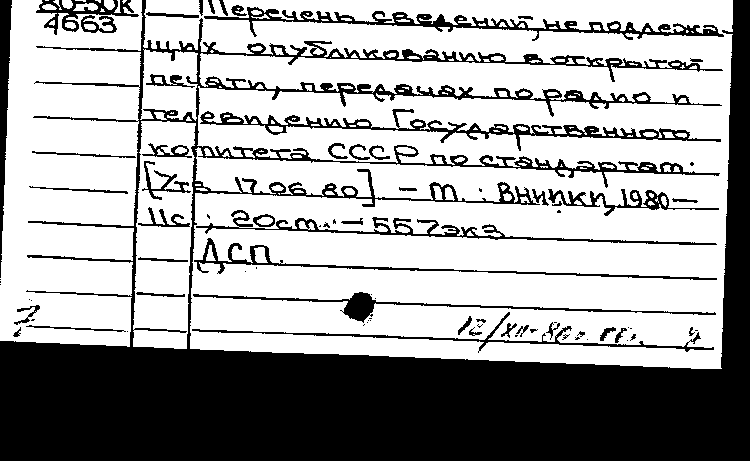 80-50к
4663
Перечень сведений, не подлежа-
щих опубликованию в открытой
печати, передачах по радио и
телевидению Государственного
комитета СССР по стандартам:
[Утв. 17.06.80] – М. : ВНИИКИ, 1980 –
11с ; 20см. – 557экз
ДСП.
12/XII-80г.